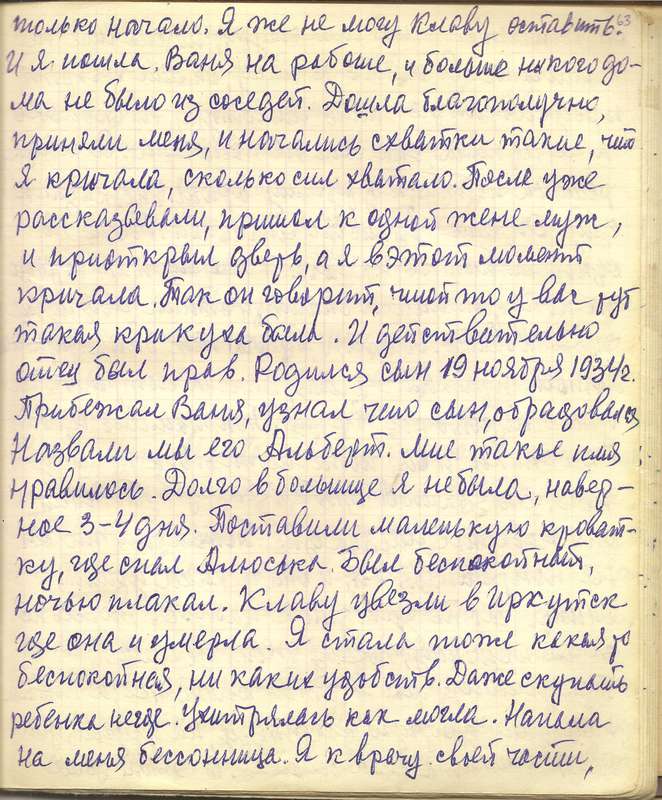 только начало. Я же не могу Клаву оставить. 63
И я пошла. Ваня на работе, и больше никого до-
ма не было из соседей. Дошла благополучно,
приняли меня, и начались схватки такие, что
я кричала, сколько сил хватало. После уже
рассказывали, пришол к одной жене муж,
и приоткрыл дверь, а я в этот момент
кричала. Так он говорит, чтой то у вас тут
такая крикуха была. И действительно
отец был прав. Родился сын 19 ноября 1934г.
Прибежал Ваня, узнал что сын, обрадовался
Назвали мы его Альберт. Мне такое имя
нравилось. Долго в больнице я не была, навер-
ное 3-4 дня. Поставили маленькую кроват-
ку, где спал Алюська. Был беспокойный,
ночью плакал. Клаву увезли в Иркутск
где она и умерла. Я стала тоже какая то
беспокойная, ни каких удобств. Даже скупать
ребенка негде. Ухитрялась как могла. Напала
на меня бессонница. Я к врачу своей части,